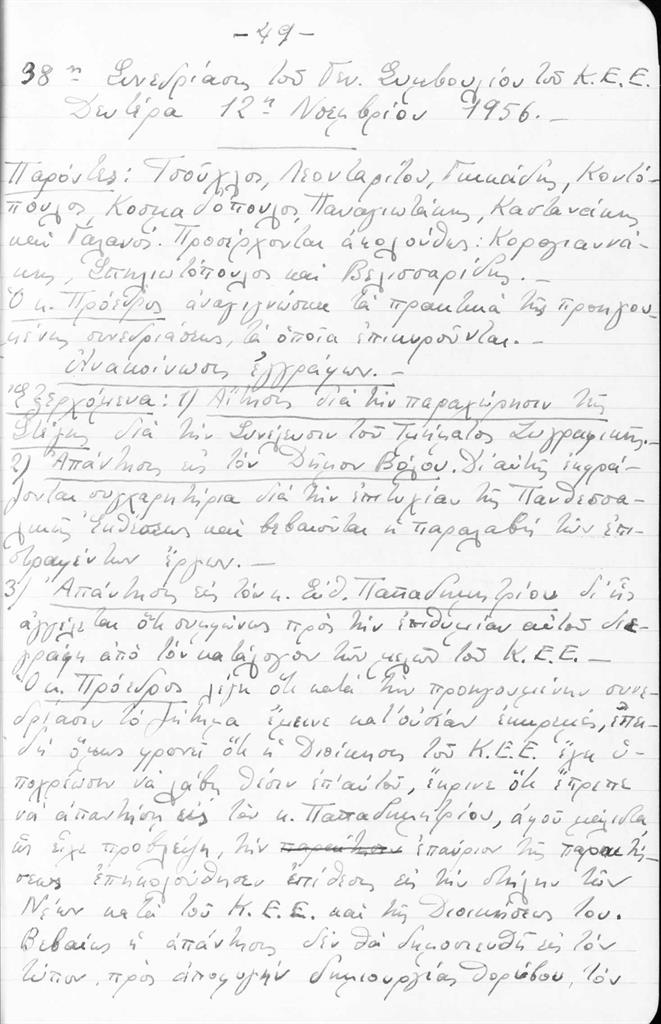 - 49 -
38η Συνεδρίασις τοῦ Γεν. Συμβουλίου τοῦ Κ.Ε.Ε.
Δευτέρα 12η Νοεμβρίου 1956.-
Παρόντες: Τσοῦχλος, Λεονταρίτου, Γκικάδης, Κοντό-
πουλος, Κοσμαδόπουλος, Παναγιωτάκης, Καστανάκης
καὶ Γαλανός. Προσέρχονται ἀκολούθως: Κορογιαννά-
κης, Σπηλιωτόπουλος καὶ Βελισσαρίδης.-
Ὁ κ. Πρόεδρος ἀναγιγνώσκει τὰ πρακτικὰ τῆς προηγου-
μένης συνεδριάσεως, τὰ ὁποῖα ἐπικυροῦνται.-
Ἀνακοίνωσις ἐγγράφων.-
Ἐξερχόμενα: 1) Αἴτησις διὰ τὴν παραχώρησιν τῆς
Στέγης διὰ τὴν Συνέλευσιν τοῦ Τμήματος Ζωγραφικῆς.-
2) Ἀπάντησις εἰς τὸν Δῆμον Βόλου. Δι' αὐτῆς ἐκφρά-
ζονται συγχαρητήρια διὰ τὴν ἐπιτυχίαν τῆς Πανθεσσα-
λικῆς Ἐκθέσεως καὶ βεβαιοῦται ἡ παραλαβὴ τῶν ἐπι-
στραφέντων ἔργων.-
3) Ἀπάντησις εἰς τὸν κ. Εὐθ. Παπαδημητρίου δι' ἧς
ἀγγέλεται ὅτι συμφώνως πρὸς τὴν ἐπιθυμίαν αὐτοῦ διε-
γράφη ἀπὸ τὸν κατάλογον τῶν μελῶν τοῦ Κ.Ε.Ε.-
Ὁ κ. Πρόεδρος λέγει ὅτι κατὰ τὴν προηγουμένην συνε-
δρίασιν τὸ ζήτημα ἔμεινε κατ' οὐσίαν ἐκκρεμές, ἐπει-
δὴ ὅμως φρονεῖ ὅτι ἡ Διοίκησις τοῦ Κ.Ε.Ε. ἔχει ὑ-
ποχρέωσιν νὰ λάβῃ θέσιν ἐπ' αὐτοῦ, ἔκρινε ὅτι ἔπρεπε
νὰ ἀπαντήσῃ εἰς τὸν κ. Παπαδημητρίου, ἀφοῦ μάλιστα
ὡς εἶχε προβλέψει, τὴν παραίτησιν ἐπαύριον τῆς παραιτή-
σεως ἐπηκολούθησεν ἐπίθεσις εἰς τὴν στήλην τῶν
Νέων κατὰ τοῦ Κ.Ε.Ε. καὶ τῆς Διοικήσεώς του.
Βεβαίως ἡ ἀπάντησις δὲν θὰ δημοσιευθῇ εἰς τὸν
τύπον, πρὸς ἀποφυγὴν δημιουργίας θορύβου, τὸν